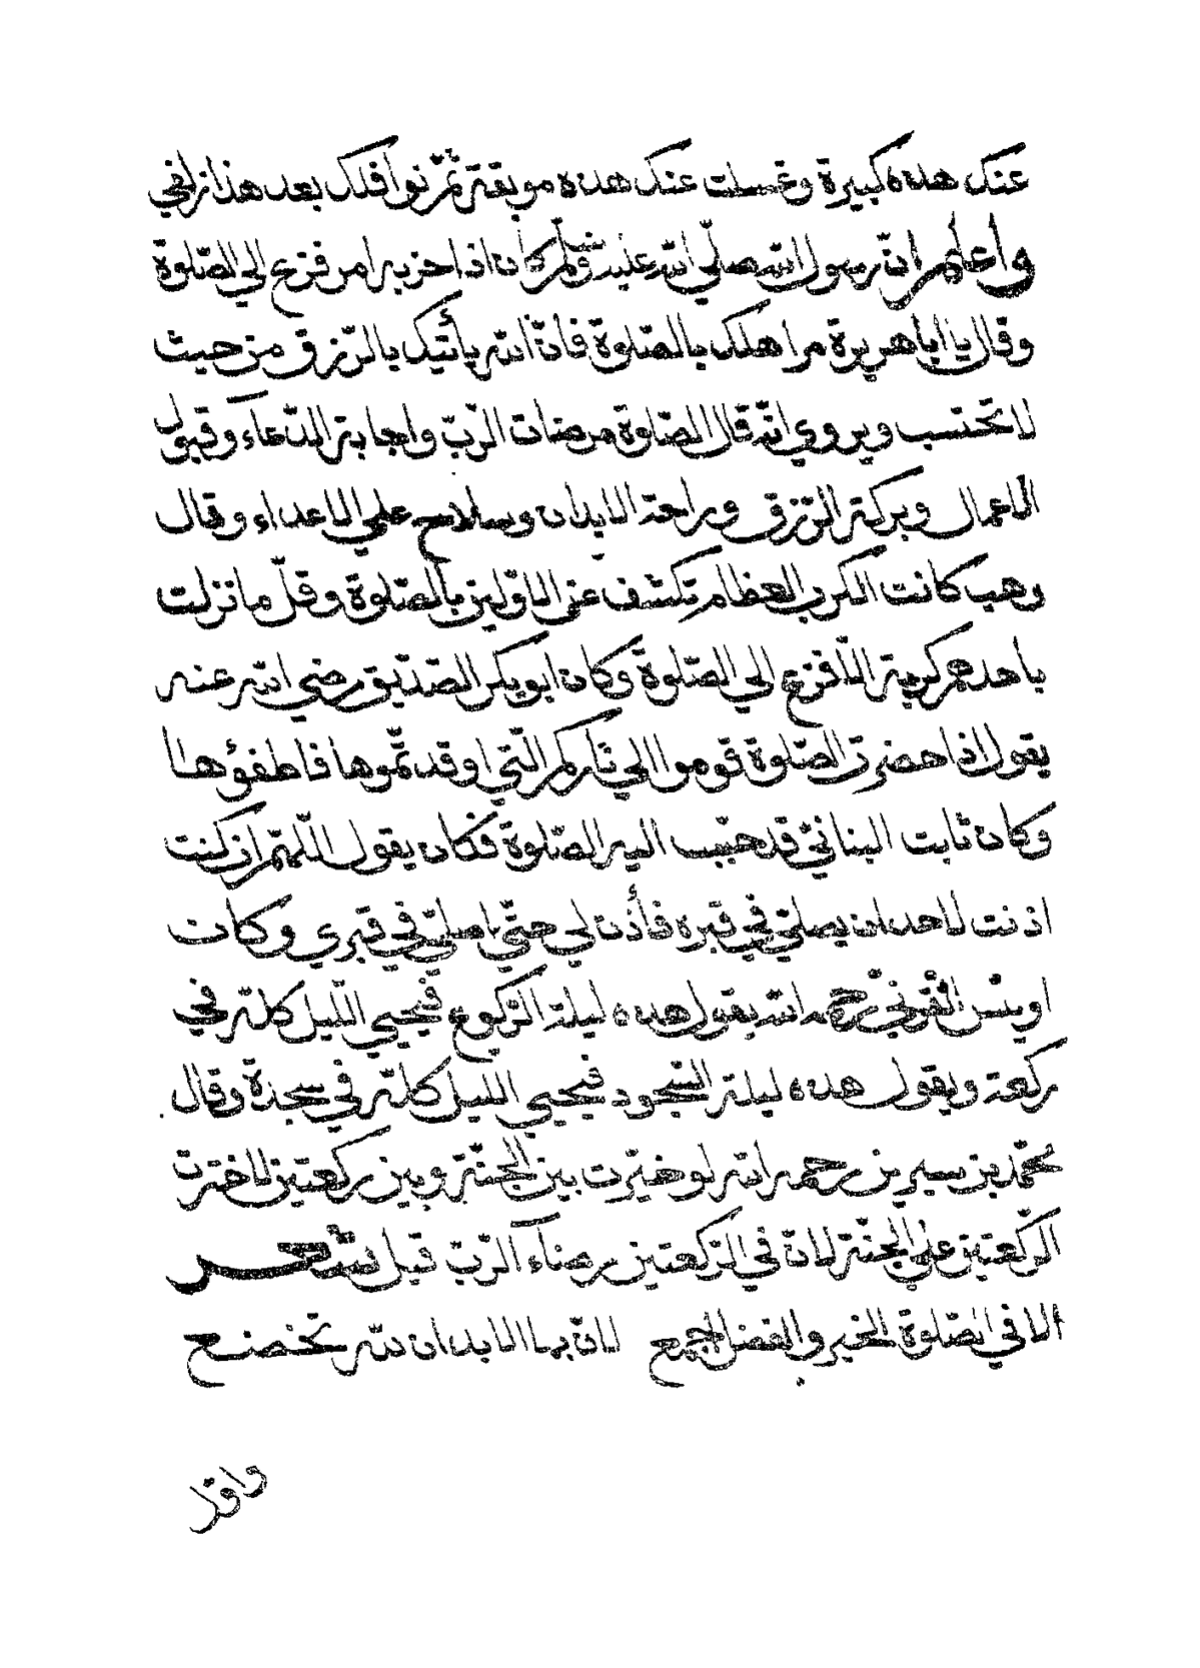 عنك هذه كبيرة وغسلت عنك هذه موبقة ثمّ نوافلك بعد هذا زلفي
واعلم انّ رسول الله صلّي الله عليه وسلّم كان اذا حزبه امر فزع الي الصّلوة
وقال يا اباهريرة مر اهلك بالصّلوة فانّ الله يأتيك بالرّزق من حيث
لا تحتسب ويروي انّه قال الصّلوة مرضات الرّبّ واجابة الدّعآء وقبول
الاعمال وبركة الرّزق وراحة الابدان وسلاح علي الاعداء وقال
وهب كانت الكرب العظام تكشف عن الاوّلين بالصّلوة وقلّ ما نزلت
باحدهم كربة الّا فزع الي الصّلوة وكان ابوبكر الصّدّيق رضي الله عنه
يقول اذا حضرت الصّلوة قوموا الي ناركم الّتي اوقدتّموها فاطفؤها
وكان ثابت البنانيّ قد حبّب اليه الصّلوة فكان يقول اللّهمّ ان كنت
اذنت لاحد ان يصلّي في قبره فأذن لي حتّي اصلّي في قبري وكان
اويس القرنيّ رحمه الله يقول هذه ليلة الرّكوع فيحيي اللّيل كلّه في
ركعة ويقول هذه ليلة السّجود فيحيي الليل كلّه في سجدة وقال
محمّد بن سيرين رحمه الله لو خيّرت بين الجنّة وبين ركعتين لاخترت
الرّكعتين علي الجنّة لانّ في الرّكعتين رضآء الرّبّ قيل شعر
الا في الصّلوة الخير والفضل اجمع لانّ بها الابدان للّه تخضع
واقل